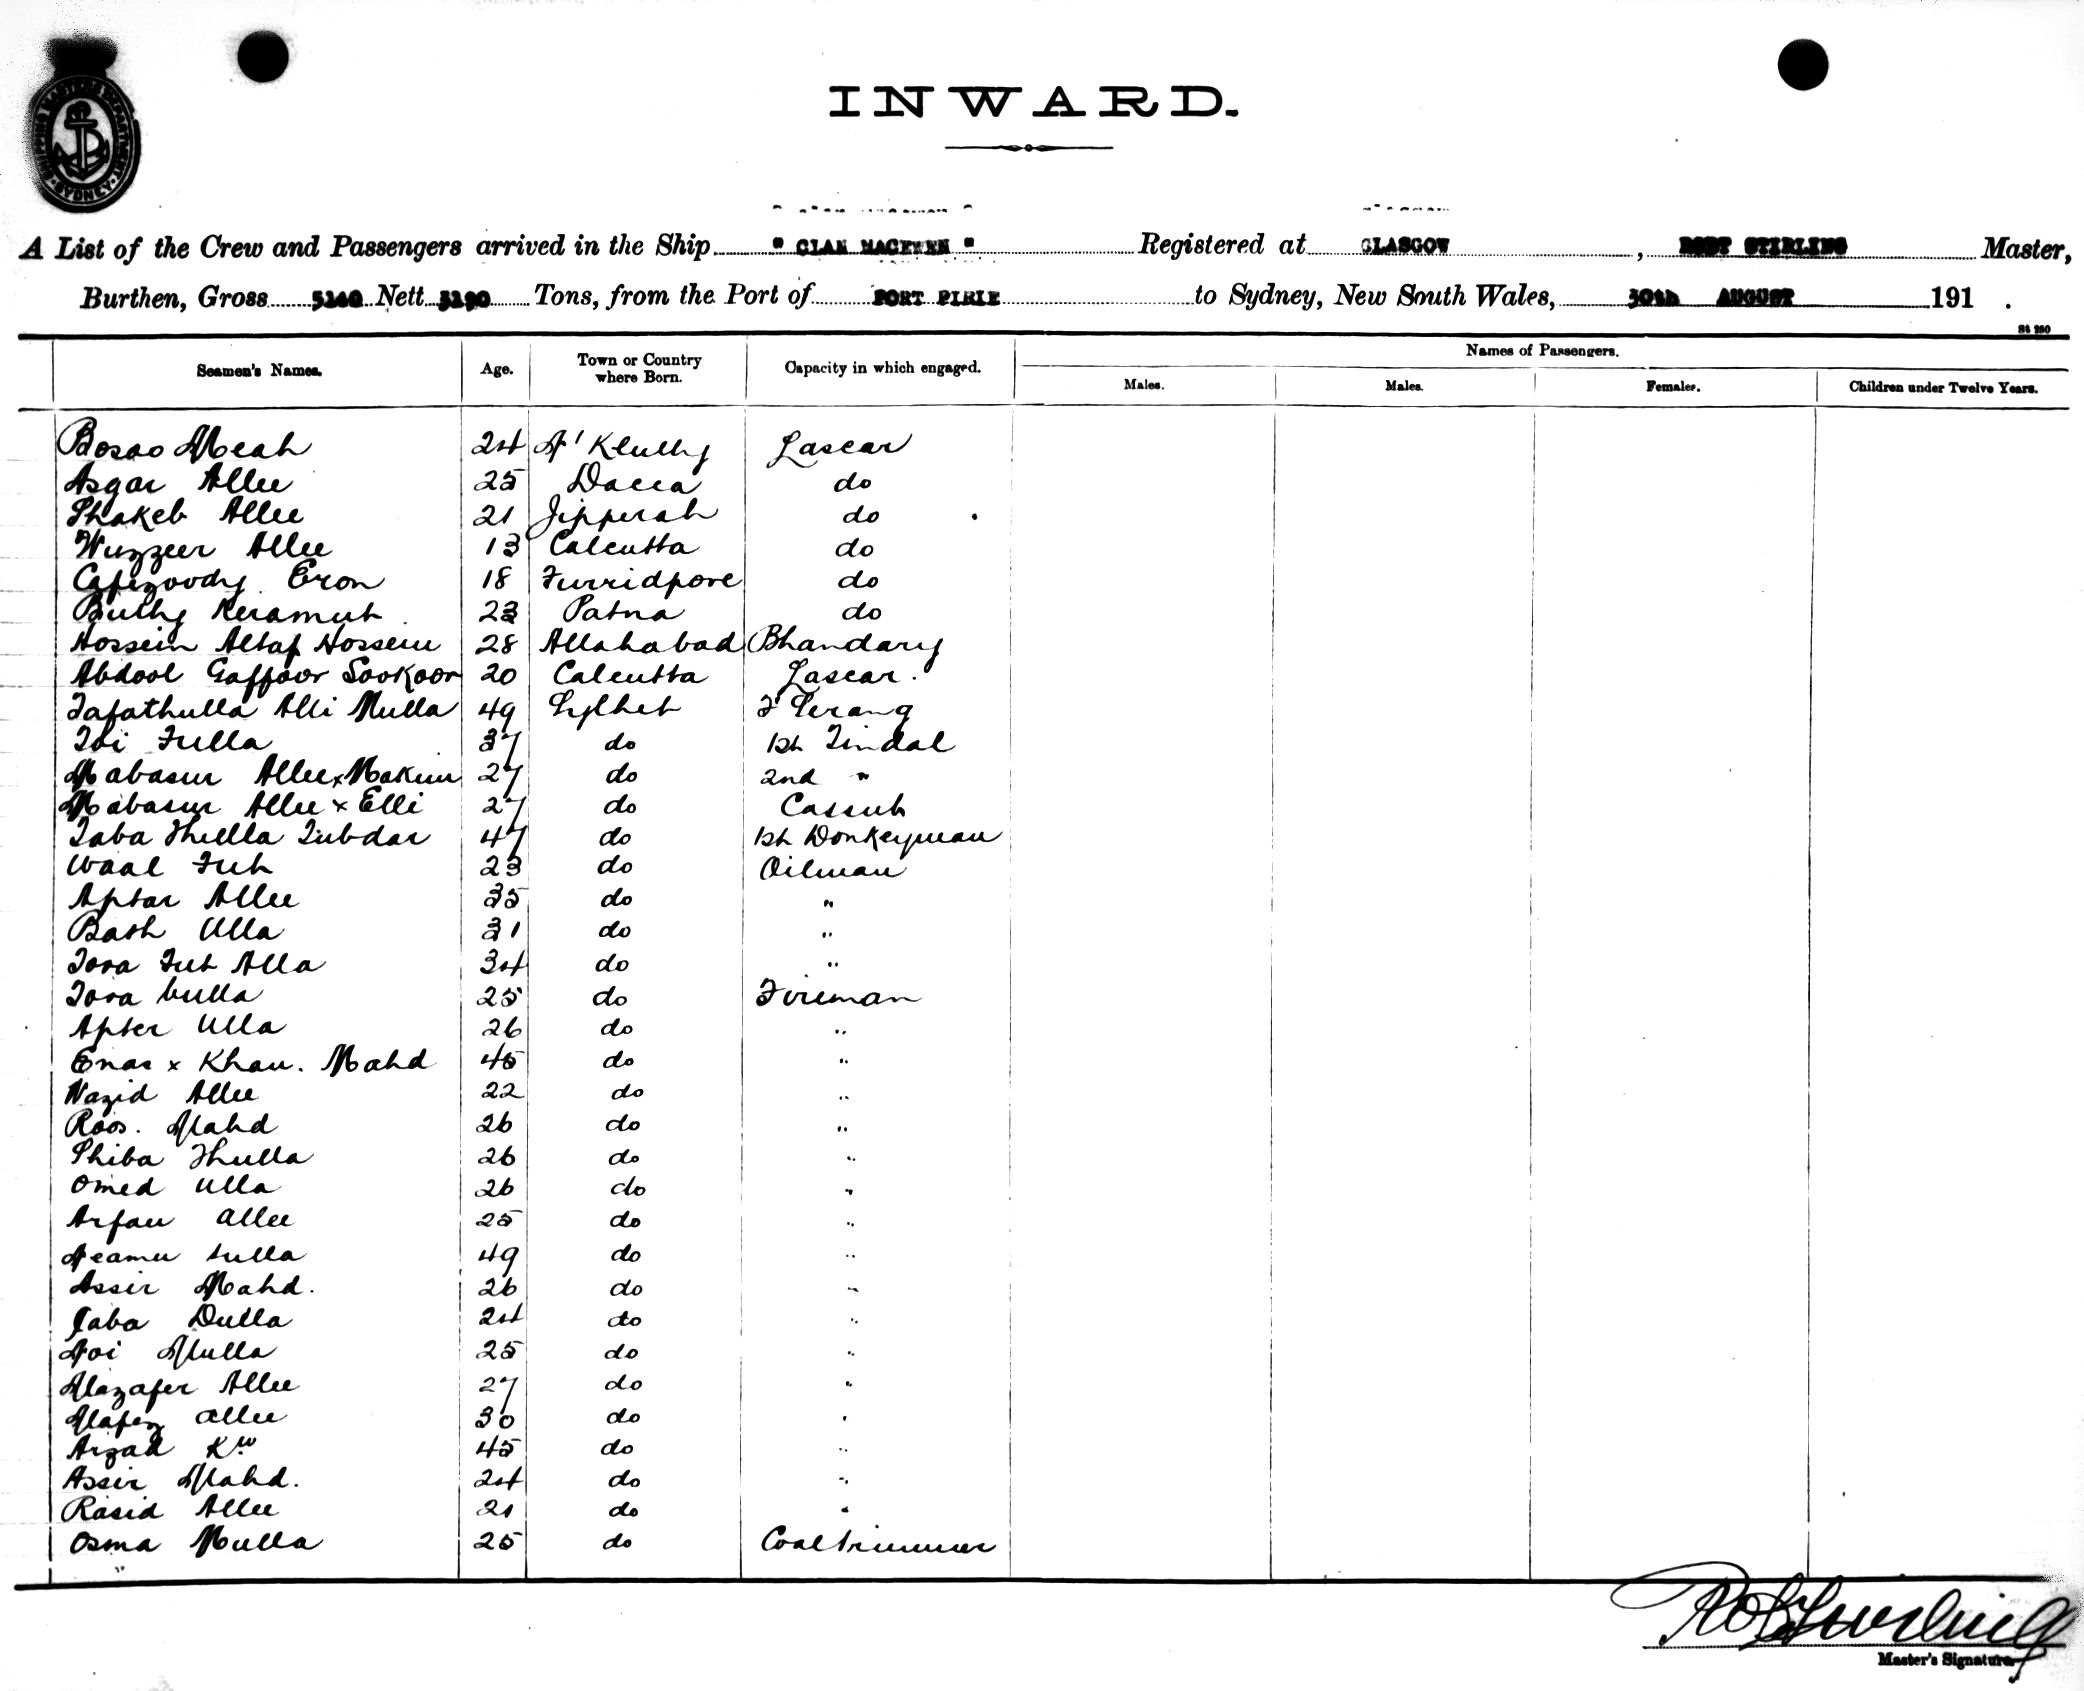 SHIPPING MASTERS DEPARTMENT
SYDNEY
INWARD.
A List of the Crew and Passengers arrived in the Ship "CLAN MACEWEN" Registered at GLASGOW, ROBT STIRLING Master,
Burthen, Gross 5140 Nett 3290 Tons, from the Port of PORT PIRIE to Sydney, New South Wales, 30th AUGUST 191 .
St 250
Seamen's Names. Age. Town or Country where Born. Capacity in which engaged. Names of Passengers.
Males. Males. Females. Children under Twelve Years.
Bosao Meah 24 Lascar
Asgar Allee 25 Dacca do
Shakeb Allee 21 Jipperah do
Wuzzeer Allee 13 Calcutta do
Eron 18 Furridpore do
Buthy Keramut 23 Patna do
Hossein Altaf Hossein 28 Allahabad Bhandary
Abdool Gaffoor Sookoor 20 Calcutta Lascar.
Tafathulla Alli Mulla 49 Sylhet F Serang
Toi Fulla 37 do 1st Tindal
Mabasur Allee x Makim 27 do 2nd "
Mabasur Allee x Elli 27 do Cassub
Taba Thulla Tubdar 47 do 1st Donkeyman
Waal Fut 23 do Oilman
Aptar Allee 35 do "
Bash Ulla 31 do "
Tora Fut Alla 34 do "
Tora bulla 25 do Fireman
Apter Ulla 26 do "
Enas x Khan. Mahd 45 do "
Wazid Allee 22 do "
Roos. Mahd 26 do "
Shiba Thulla 26 do "
Omed Ulla 26 do "
Arfan Allee 25 do "
Neamu tulla 49 do "
Assir Mahd. 26 do "
Jaba Dulla 24 do "
Noi Mulla 25 do "
Mazafer Allee 27 do "
Mafez Allee 30 do "
Arzad Kn 45 do "
Assir Mahd. 24 do "
Rasid Allee 21 do "
Osma Mulla 25 do Coaltrimmer
Robt Stirling
Master's Signature